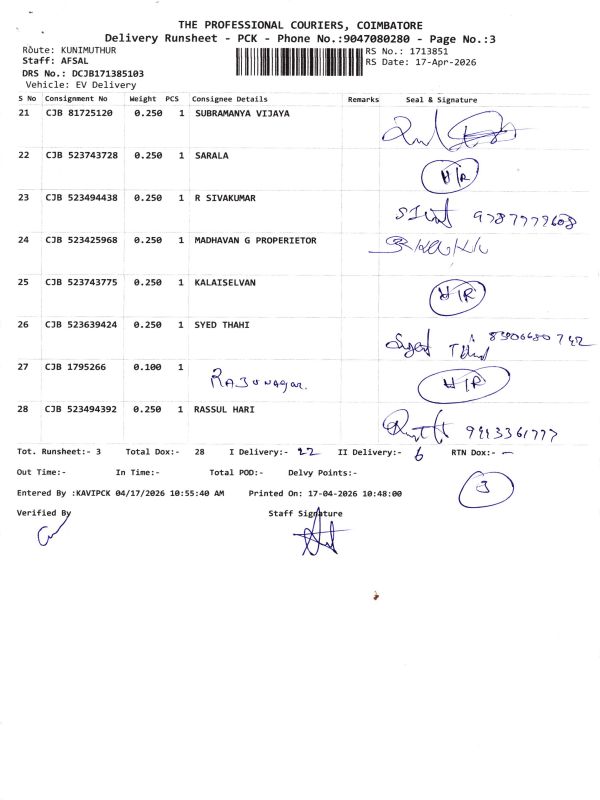 THE PROFESSIONAL COURIERS, COIMBATORE
Delivery Runsheet - PCK - Phone No.:9047080280 - Page No.:3
Route: KUNIMUTHUR RS No.: 1713851
Staff: AFSAL RS Date: 17-Apr-2026
DRS No.: DCJB171385103
Vehicle: EV Delivery
S No Consignment No Weight PCS Consignee Details Remarks Seal & Signature
21 CJB 81725120 0.250 1 SUBRAMANYA VIJAYA
22 CJB 523743728 0.250 1 SARALA H/R
23 CJB 523494438 0.250 1 R SIVAKUMAR 9787777608
24 CJB 523425968 0.250 1 MADHAVAN G PROPERIETOR
25 CJB 523743775 0.250 1 KALAISELVAN H/R
26 CJB 523639424 0.250 1 SYED THAHI Syed
27 CJB 1795266 0.100 1 H/R
28 CJB 523494392 0.250 1 RASSUL HARI
Tot. Runsheet:- 3 Total Dox:- 28 I Delivery:- 22 II Delivery:- 6 RTN Dox:- -
Out Time:- In Time:- Total POD:- Delvy Points:-
3
Entered By :KAVIPCK 04/17/2026 10:55:40 AM Printed On: 17-04-2026 10:48:00
Verified By Staff Signature